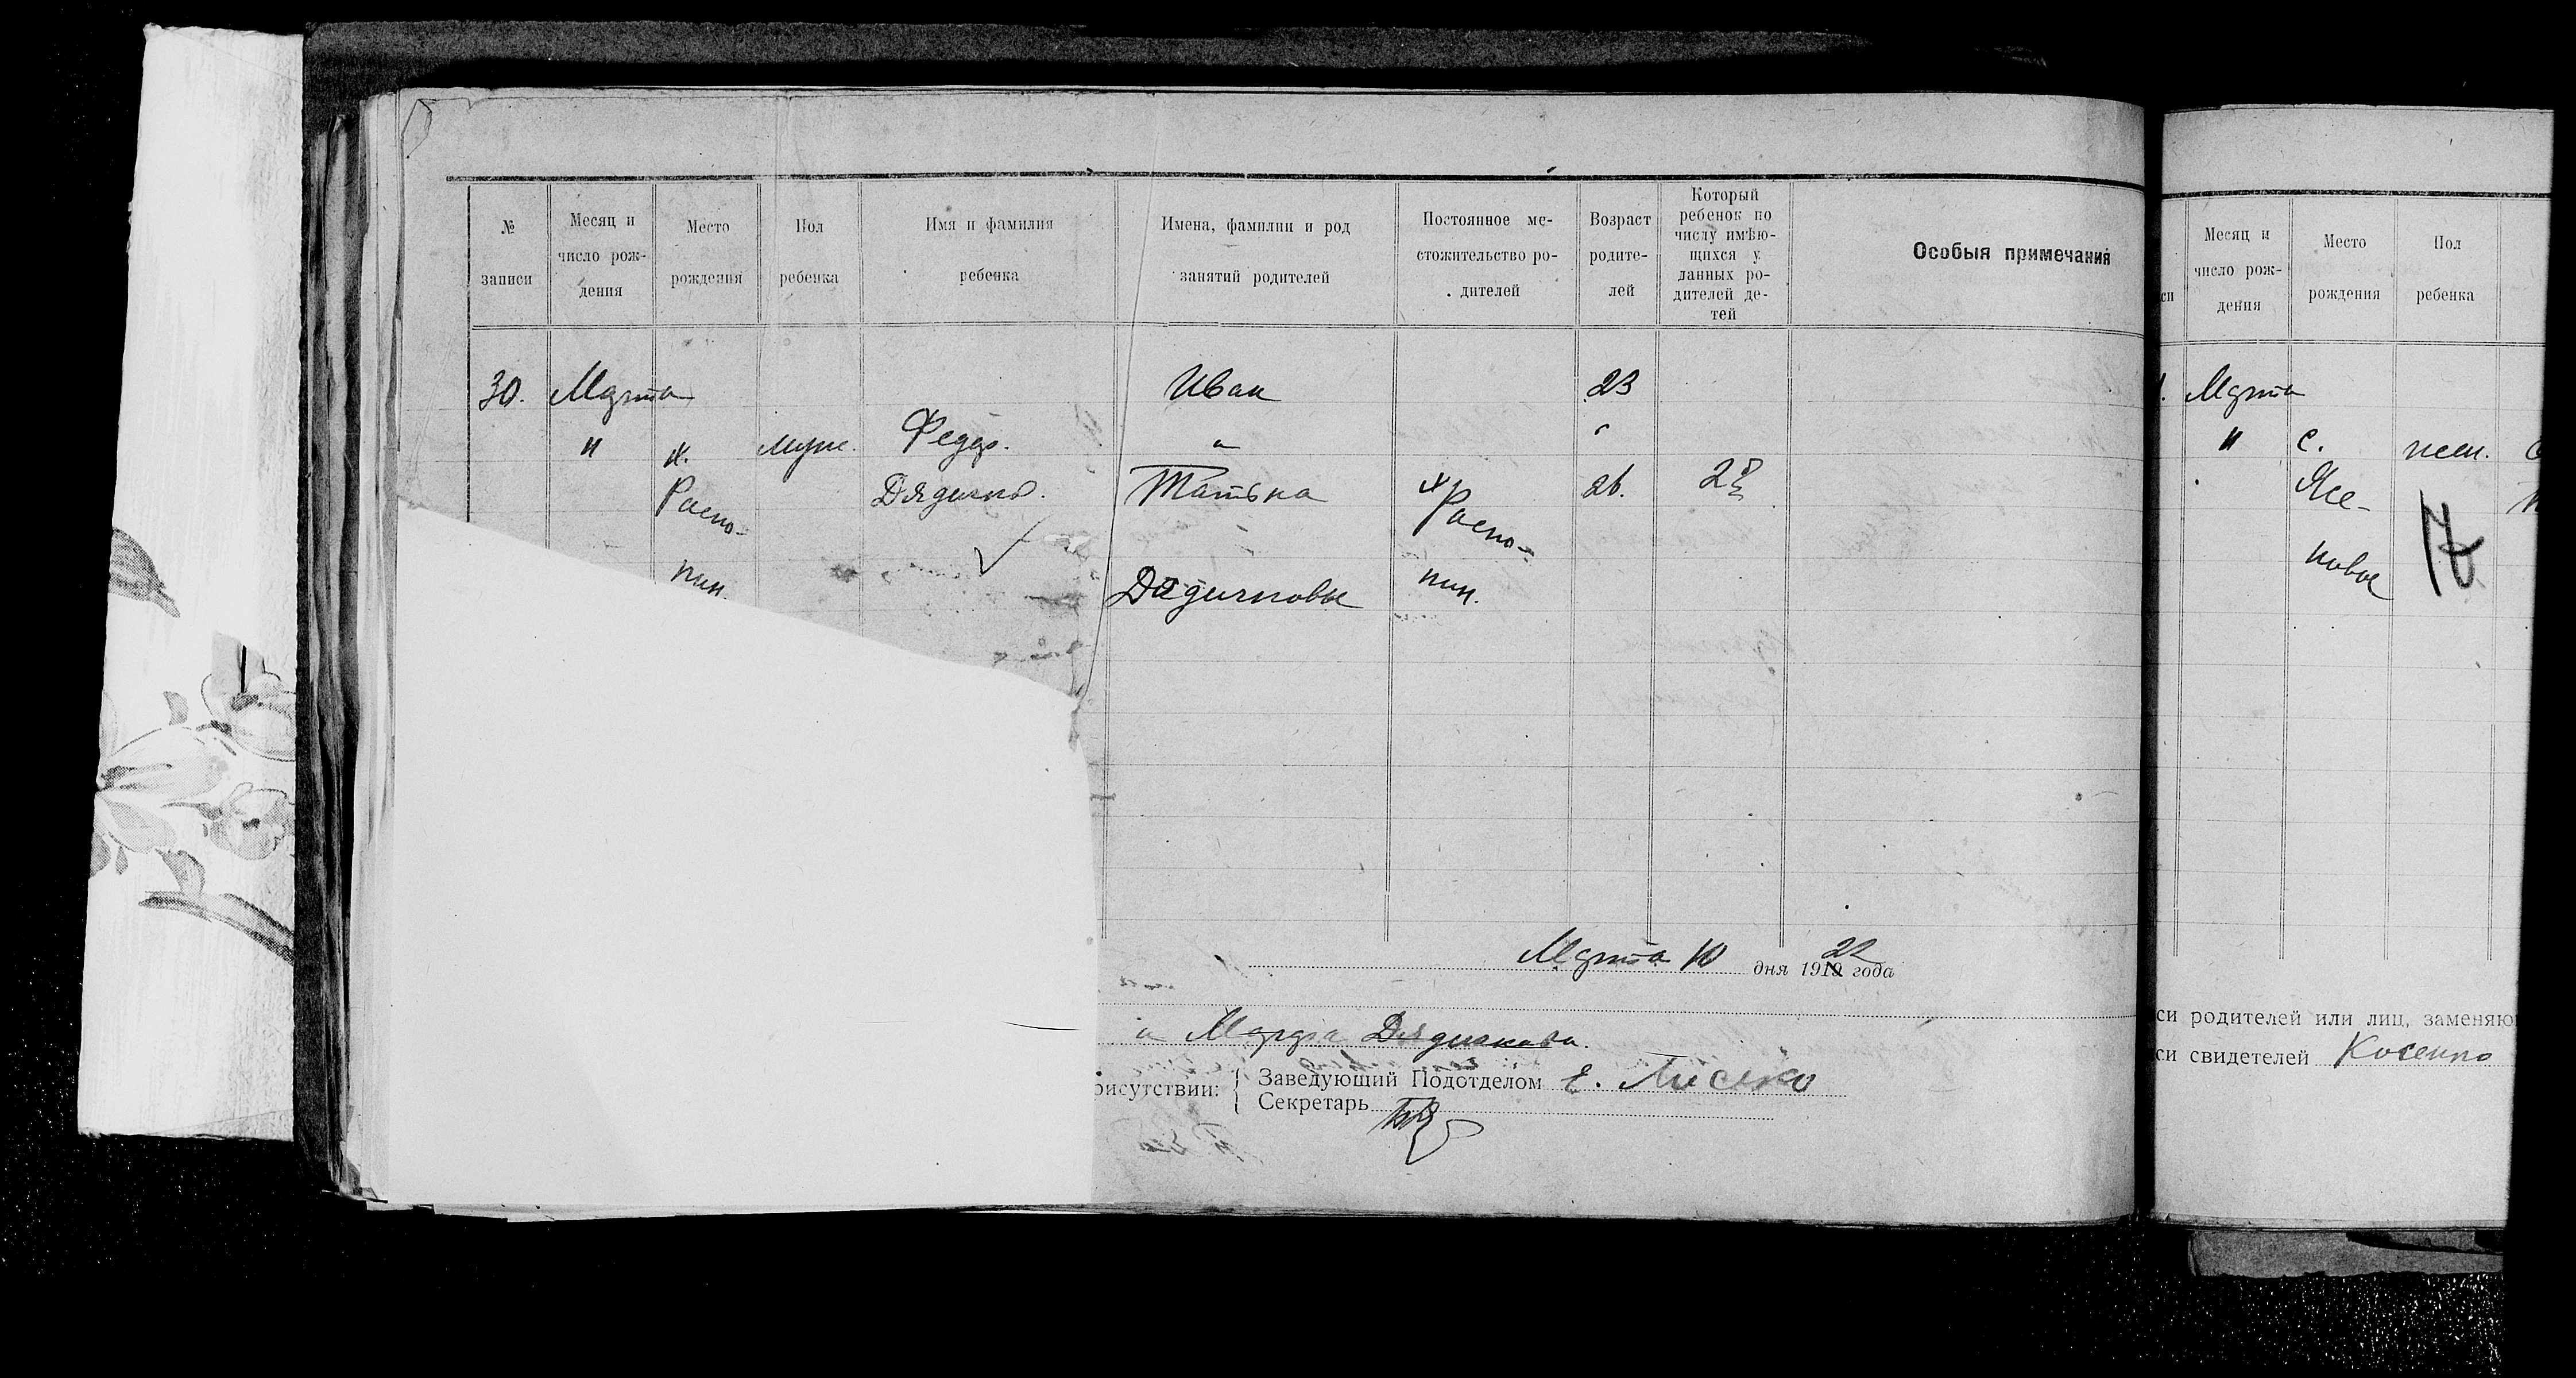 № записи
Месяц и число рож-дения
Место рождения
Пол ребенка
Имя и фамилия ребенка
Имена, фамилии и род занятий родителей
Постоянное ме-стожительство ро-дителей
Возраст родите-лей
Который ребенок по числу имѣю-щихся у данных ро-дителей де-тей
Особыя примечания
30. Марта Иван 23
муж. Федор.
Татьяна 26. 2й
пин. пин.
Марта 10 дня 1919 22 года
и Марфа
рисутствии: Заведующий Подотделом Е.
Секретарь
си
Месяц и число рож-дения
Место рождения
Пол ребенка
Марта
с. жен.
Ясе-
новое
17
си родителей или лиц, заменяю
си свидетелей Косенко